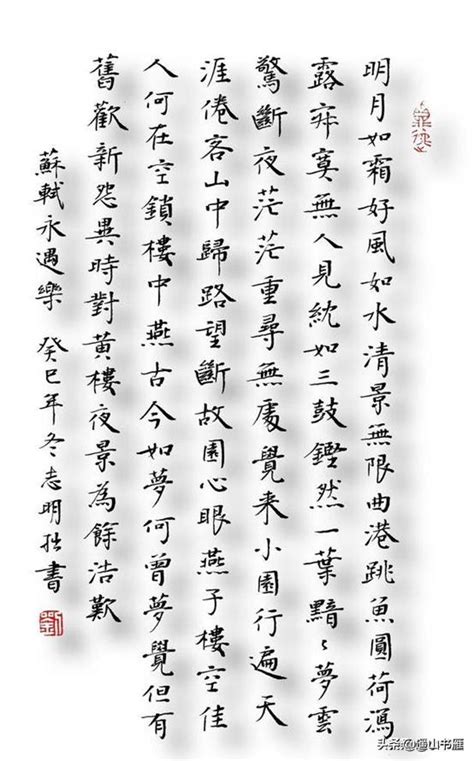 明月如霜好風如水清景無限曲港跳魚圓荷瀉
露寂寞無人見紞如三鼓鏗然一葉黯〻夢雲
驚斷夜茫茫重尋無處覺来小園行遍天
涯倦客山中歸路望斷故園心眼燕子樓空佳
人何在空鎖樓中燕古今如夢何曾夢覺但有
舊歡新怨異時對黄樓夜景為餘浩歎
蘇軾永遇樂 癸巳年冬志明拙書
劉
头条@山书雁